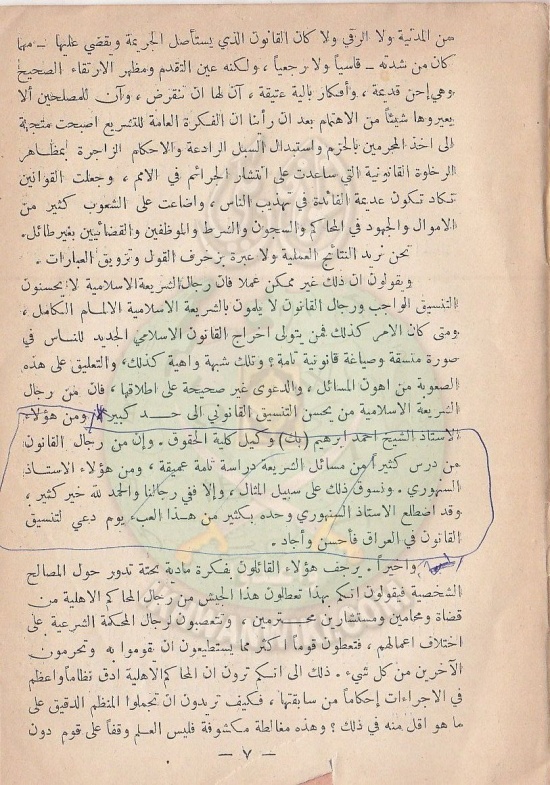 من المدنية ولا الرقي ولا كان القانون الذي يستأصل الجريمة ويقضي عليها – مهما
كان من شدته – قاسياً ولا رجعياً ، ولكنه عين التقدم ومظهر الارتقاء الصحيح
وهي إحن قديمة ، وأفكار بالية عتيقة ، آن لها ان تنقرض ، وآن للمصلحين ألا
يعيروها شيئاً من الاهتمام بعد ان رأينا ان الفكرة العامة للتشريع اصبحت متجهة
الى اخذ المجرمين بالحزم واستبدال السبل الرادعة والاحكام الزاجرة بمظاهر
الرخاوة القانونية التي ساعدت على انتشار الجرائم في الامم ، وجعلت القوانين
تكاد تكون عديمة الفائدة في تهذيب الناس ، واضاعت على الشعوب كثير من
الاموال والجهود في المحاكم والسجون والشرط والموظفين والقضائيين بغير طائل.
نحن نريد النتائج العملية ولا عبرة بزخرف القول وتزويق العبارات .
ويقولون ان ذلك غير ممكن عملا فان رجال الشريعة الاسلامية لا يحسنون
التنسيق الواجب ورجال القانون لا يلمون بالشريعة الاسلامية الالمام الكامل ،
ومتى كان الامر كذلك فمن يتولى اخراج القانون الاسلامي الجديد للناس في
صورة منسقة وصياغة قانونية تامة ؟ وتلك شبهة واهية كذلك، والتعليق على هذه
الصعوبة من اهون المسائل ، والدعوى غير صحيحة على اطلاقها ، فان من رجال
الشريعة الاسلامية من يحسن التنسيق القانوني الى حد كبير ، ومن هؤلاء
الاستاذ الشيخ احمد ابرهيم (بك) وكيل كلية الحقوق . وإن من رجال القانون
من درس كثيراً من مسائل الشريعة دراسة تامة عميقة ، ومن هؤلاء الاستاذ
السنهوري . ونسوق ذلك على سبيل المثال ، وإلا ففي رجالنا والحمد لله خير كثير ،
وقد اضطلع الاستاذ السنهوري وحده بكثير من هذا العبء يوم دعي لتنسيق
القانون في العراق فأحسن وأجاد .
واخيراً . يرجف هؤلاء القائلون بفكرة مادية بحتة تدور حول المصالح
الشخصية فيقولون انكم بهذا تعطلون هذا الجيش من رجال المحاكم الاهلية من
قضاة ومحامين ومستشارين محترمين ، وتتعصبون لرجال المحكمة الشرعية على
اختلاف اعمالهم ، فتعطون قوماً اكثر مما يستطيعون ان يقوموا به وتحرمون
الآخرين من كل شيء . ذلك الى انكم ترون ان المحاكم الاهلية ادق نظاماً واعظم
في الاجراءات إحكاماً من سابقتها ، فكيف تريدون ان تحملوا المنظم الدقيق على
ما هو اقل منه في ذلك ؟ وهذه مغالطة مكشوفة فليس العلم وقفاً على قوم دون
– ٧ –